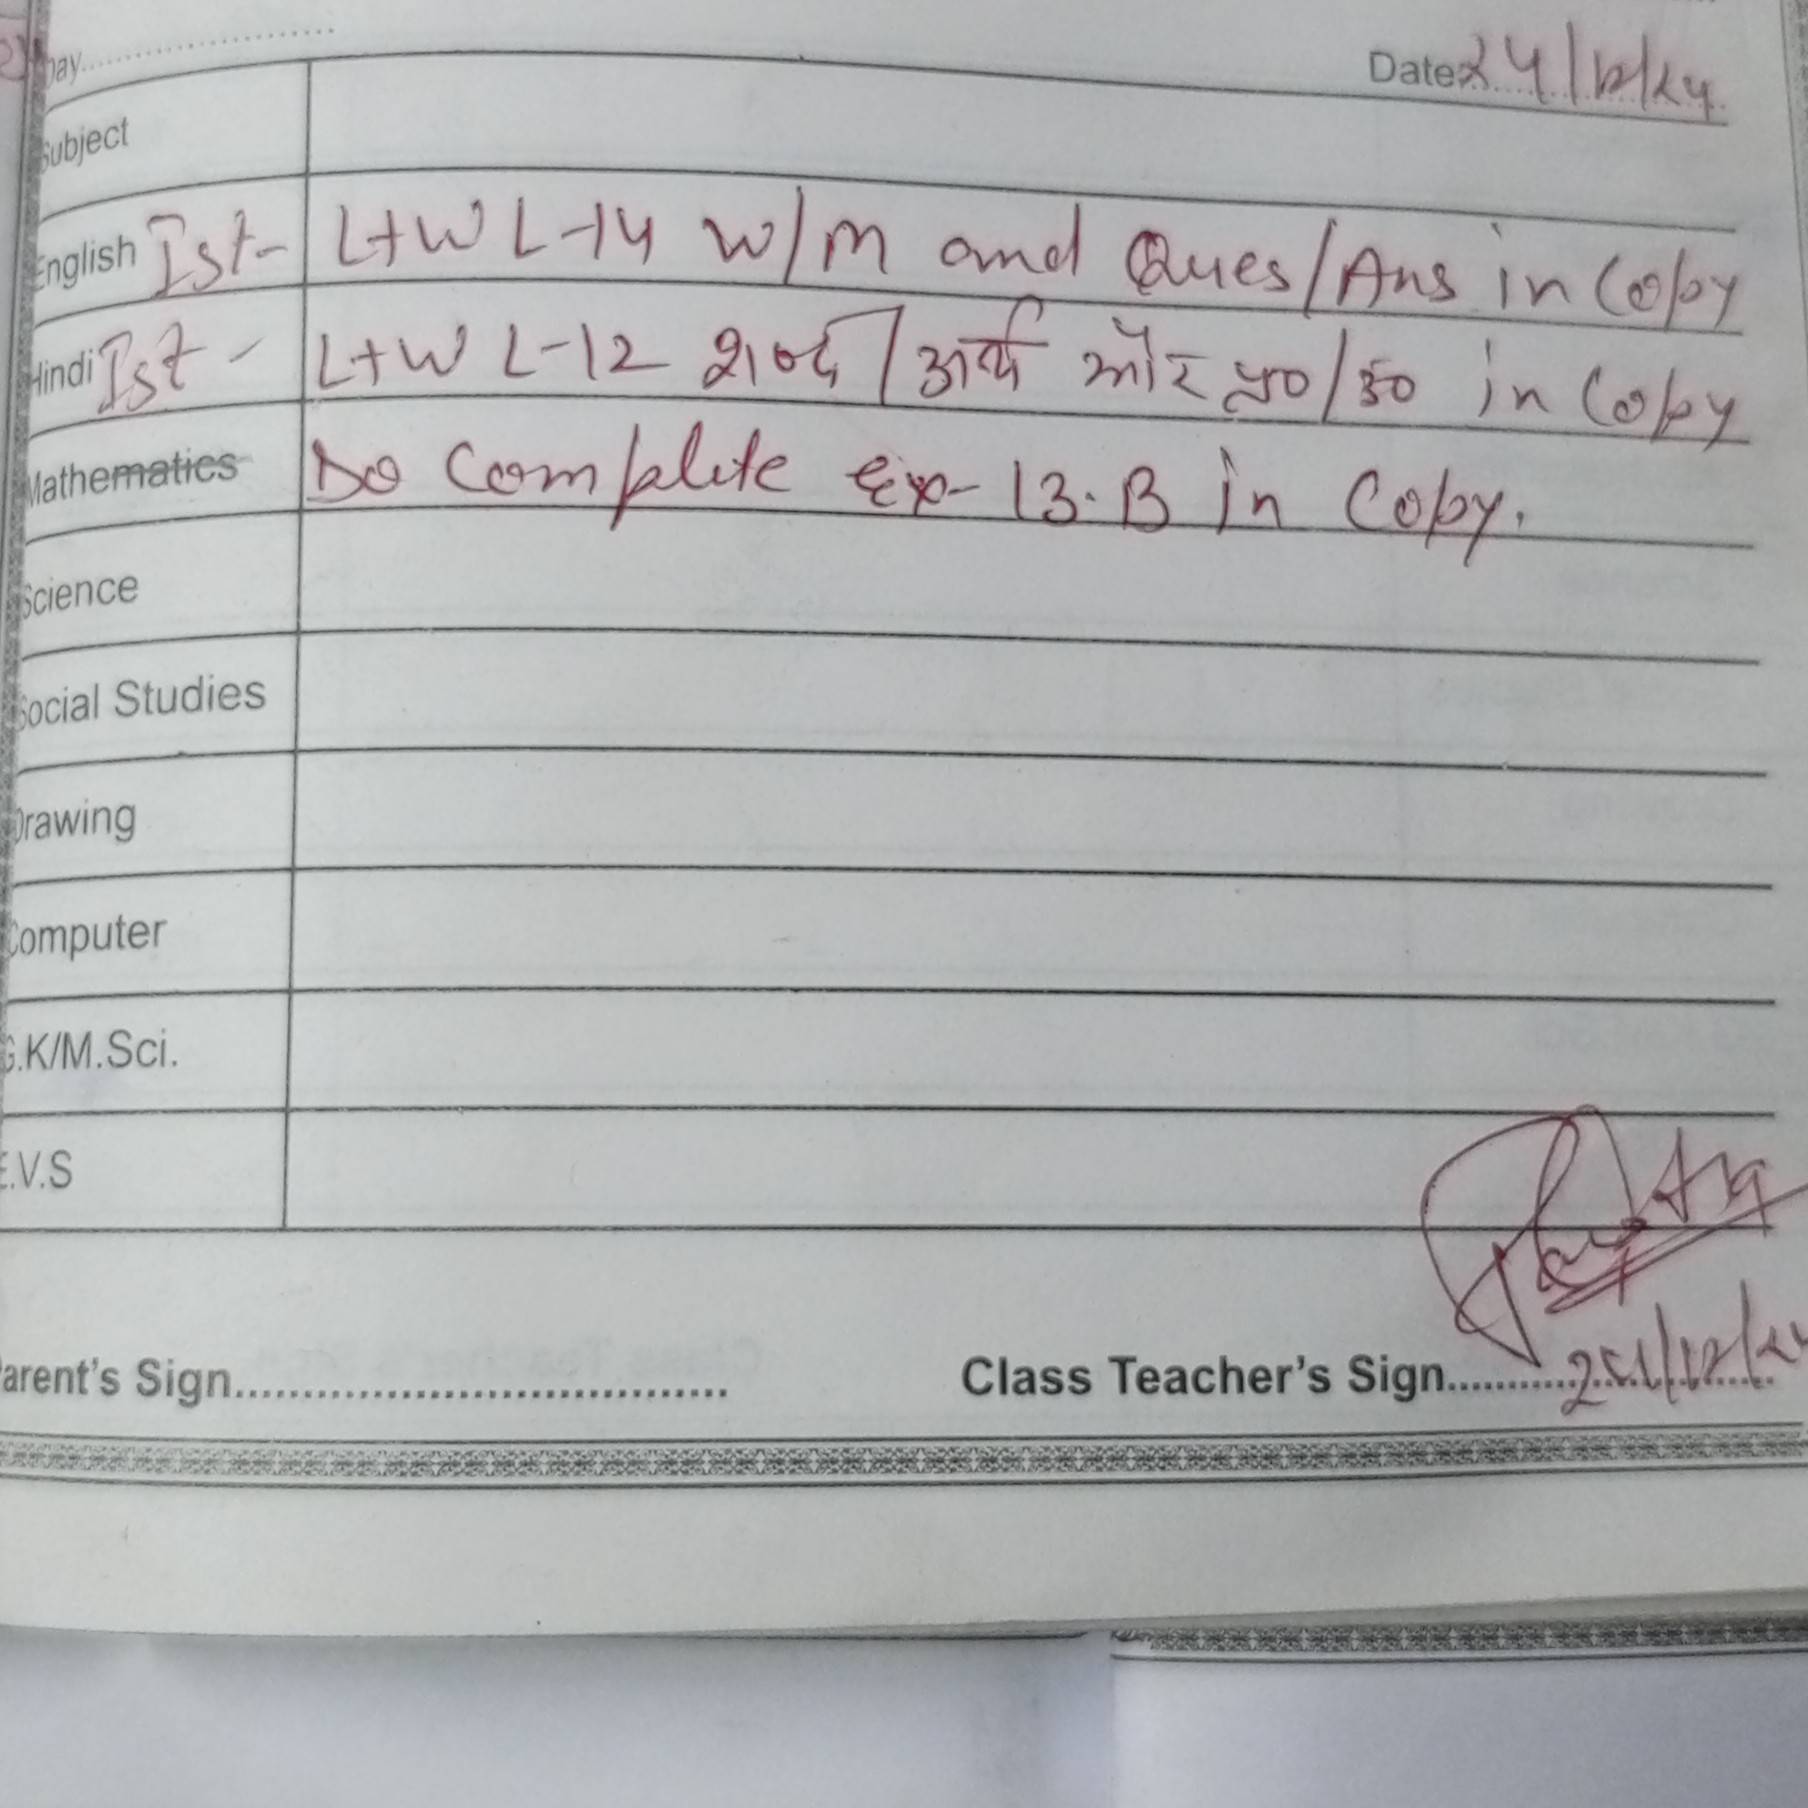 Day..........................
Date 24/12/24
Subject
English Ist- L+W L-14 W/M and Ques/Ans in Copy
Hindi Ist - L+W L-12 शब्द/अर्थ और प्र०/उ० in Copy
Mathematics Do Complete Ex- 13.B in Copy.
Science
Social Studies
Drawing
Computer
G.K/M.Sci.
E.V.S
Parent's Sign....................................
Class Teacher's Sign..........